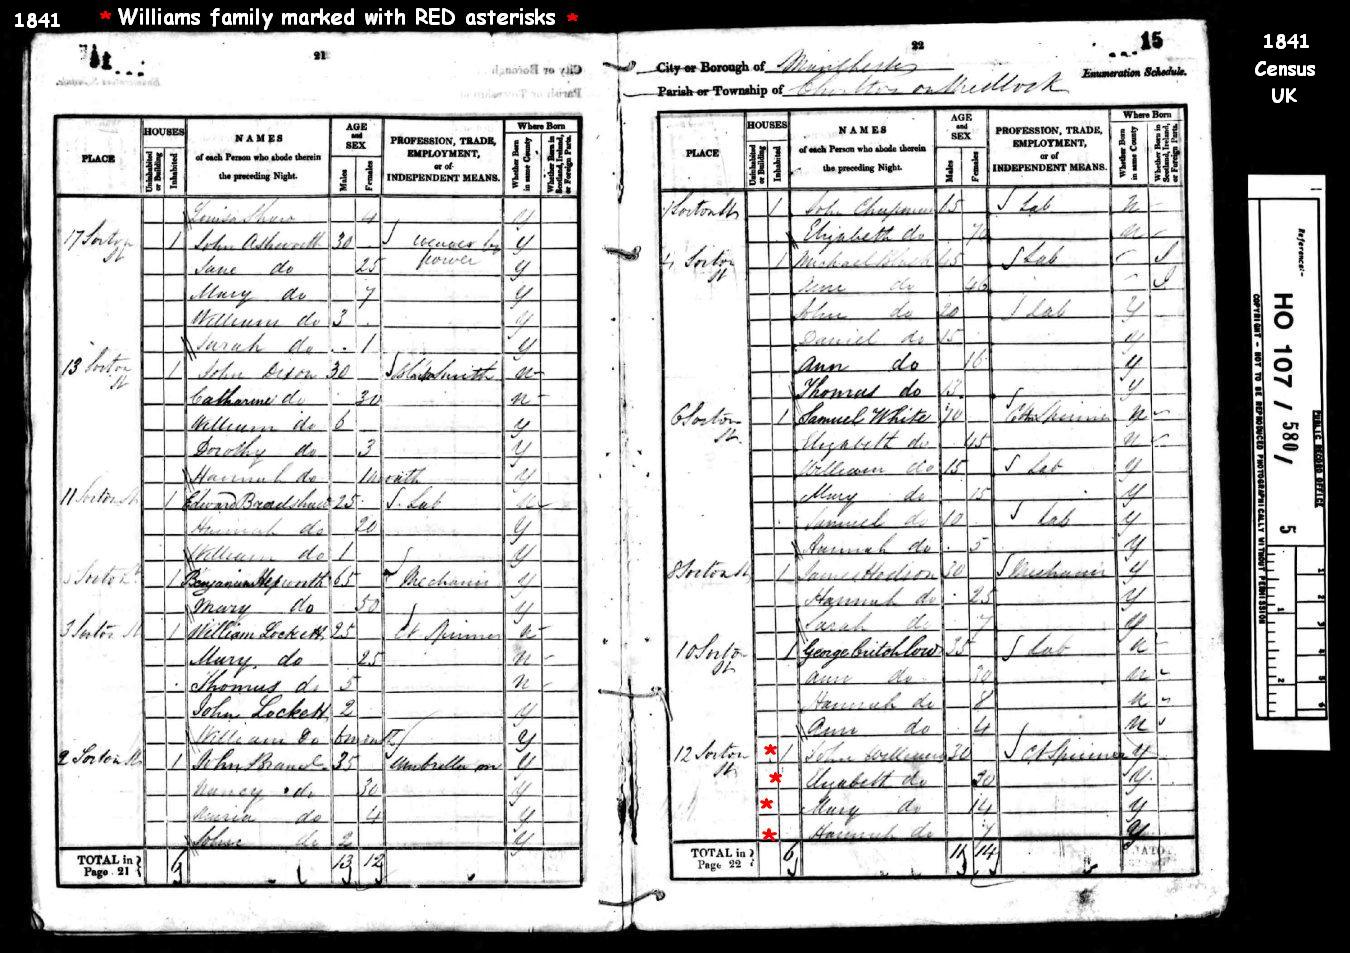 1841
* Williams family marked with RED asterisks *
1841
Census
UK
21
PLACE
HOUSES
Uninhabited or Building
Inhabited
NAMES
of each Person who abode therein
the preceding Night.
AGE
and
SEX
Males
Females
PROFESSION, TRADE,
EMPLOYMENT,
or of
INDEPENDENT MEANS.
Where Born
Whether Born in same County
Whether Born in Scotland, Ireland, or Foreign Parts.
Louisa Shaw 4 y
17 Sorton St 1 John Ashworth 30 weaver by power y
Jane do 25 y
Mary do 7 y
William do 3 y
Sarah do 1 y
13 Sorton St 1 John Dixon 30 BlackSmith n
Catharine do 30 n
William do 6 y
Dorothy do 3 y
Hannah do y
11 Sorton St 1 Edward Bradshaw 25 Lab n
Hannah do 20 y
William do 1 y
Sorton St 1 Benjamin Hepworth 65 Mechanic y
Mary do 50 y
3 Sorton St 1 William Lockett 25 Ct Spinner n
Mary do 25 n
Thomas do 5 n
John Lockett 2 y
William Do y
2 Sorton St 1 John 35 Umbrella y
Nancy do 30 y
Maria do 4 y
do 2 y
TOTAL in
Page 21
6 13 12
22
15
City or Borough of Manchester
Parish or Township of Chorlton on Medlock
Enumeration Schedule.
PLACE
HOUSES
Uninhabited or Building
Inhabited
NAMES
of each Person who abode therein
the preceding Night.
AGE
and
SEX
Males
Females
PROFESSION, TRADE,
EMPLOYMENT,
or of
INDEPENDENT MEANS.
Where Born
Whether Born in same County
Whether Born in Scotland, Ireland, or Foreign Parts.
Sorton St 1 John Chapman 15 Lab n
Elizabeth do n
4 Sorton St 1 Michael Lab I
do I
John do 20 Lab y
Daniel do 15 y
Ann do y
Thomas do y
6 Sorton St 1 Samuel White Ctn Spinner n
Elizabeth do 45 n
William do 15 Lab y
Mary do 15 y
Samuel do 10 Lab y
Hannah do 5 y
8 Sorton St 1 James Hodson 30 Mechanic y
Hannah do 25 y
Sarah do 7 y
10 Sorton St 1 George Critchlow 35 Lab n
Ann do 30 n
Hannah do 8 n
Ann do 4 n
12 Sorton St * 1 John Williams 30 Ct Spinner y
* Elizabeth do 30 y
* Mary do 14 y
* Hannah do 7 y
TOTAL in
Page 22
6 11 14
Reference:-
HO 107 / 580 / 5
PUBLIC RECORD OFFICE
COPYRIGHT - NOT TO BE REPRODUCED PHOTOGRAPHICALLY WITHOUT PERMISSION